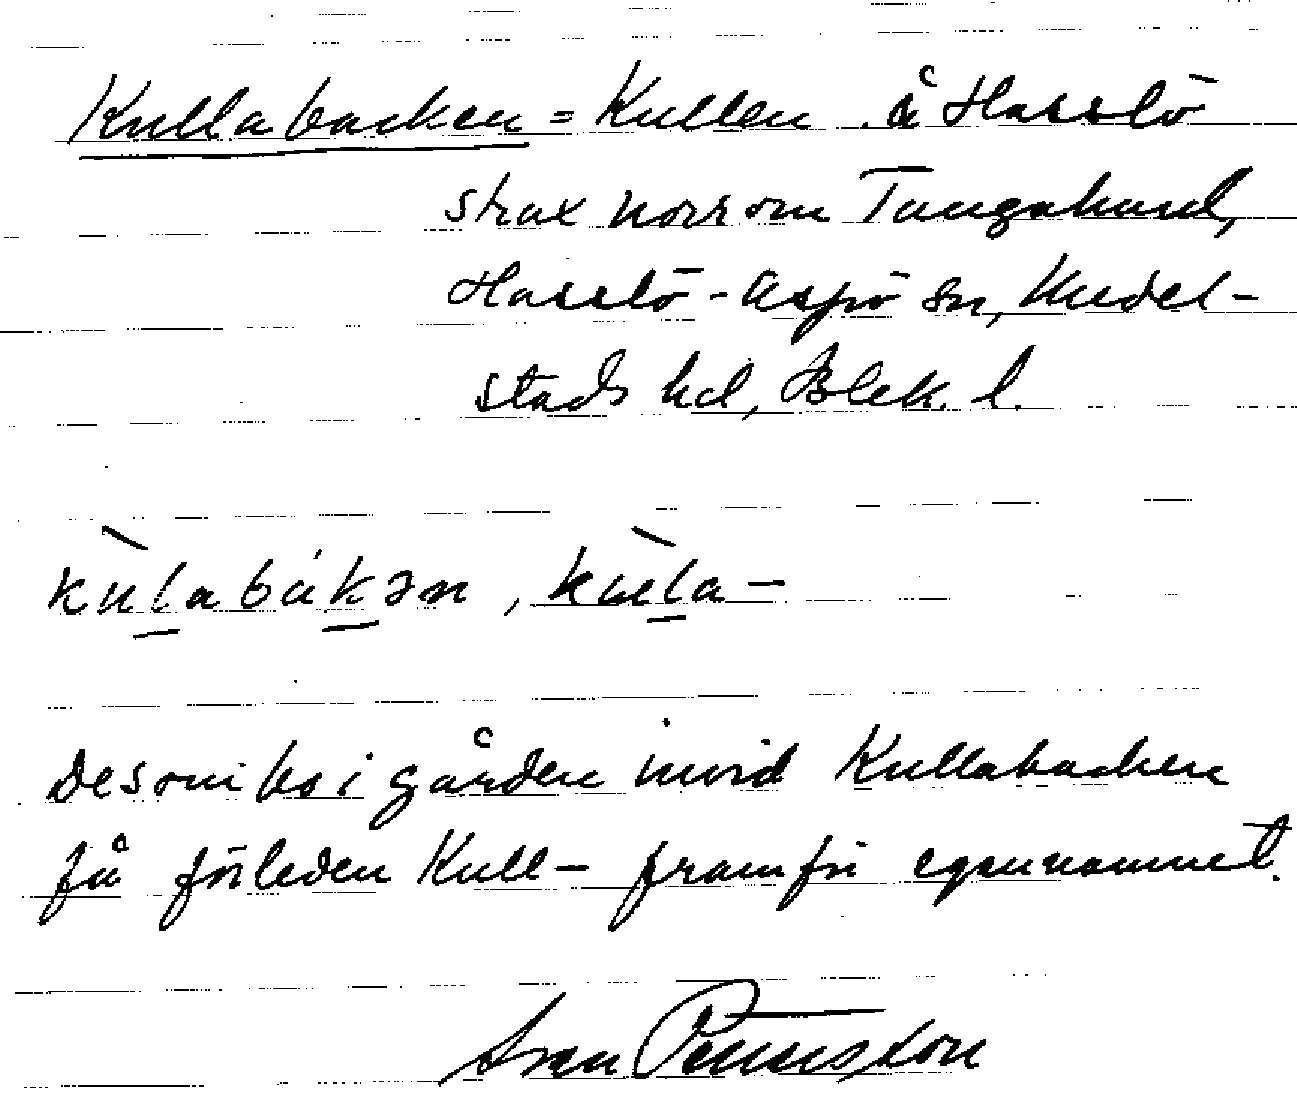 Kullabacken = Kullen å Hasslö
strax norr om Tangahund,
Hasslö-Aspö sn, Medel-
stads hd, Blek. l.
kùlabákən, kùla-
De som bo i gården invid Kullabacken
få förleden Kull- framför egennamnet.
Sven Pennsson